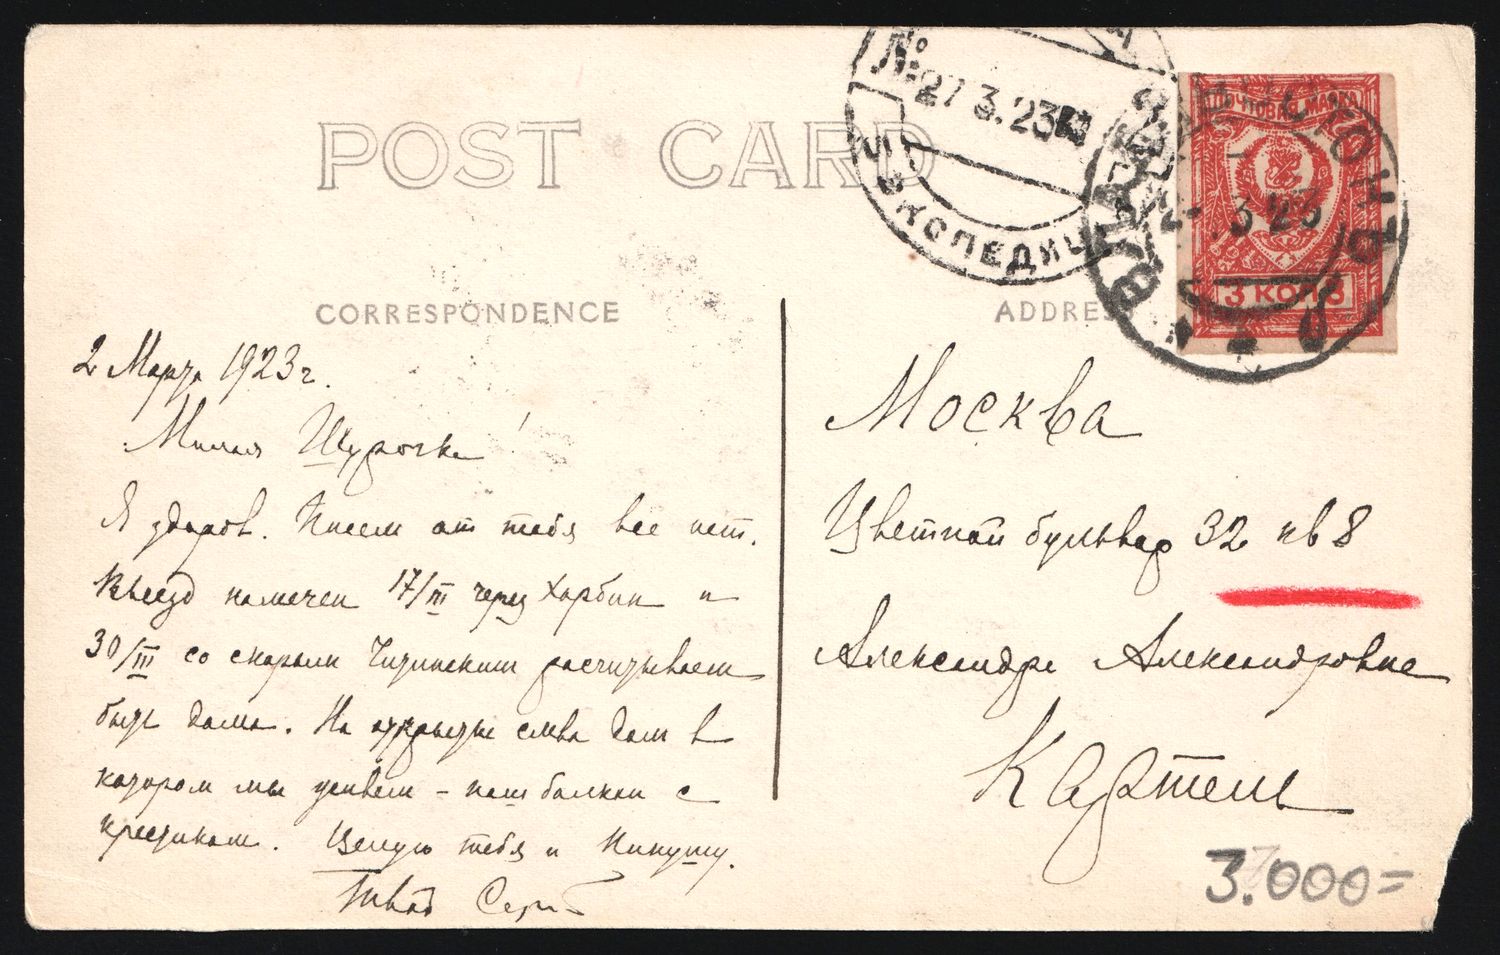 POST CARD
№ 27 3.23
ЭКСПЕДИЦ
ПОЧТОВАЯ МАРКА
3 23
3 КОП 3
CORRESPONDENCE
ADDRESS
2 Марта 1923 г.
Милая Шурочка!
Я здоров. Писем от тебя все нет.
Выезд намечен 17/III через Харбин и
30/III со скорым Читинским расчитываем
быть дома. На открытке слева дом в
котором мы живем - наш балкон с
крестиком. Целую тебя и Нинушу.
Твой Серг
Москва
Цветной бульвар 32 кв 8
Александре Александровне
Картель
3.000=